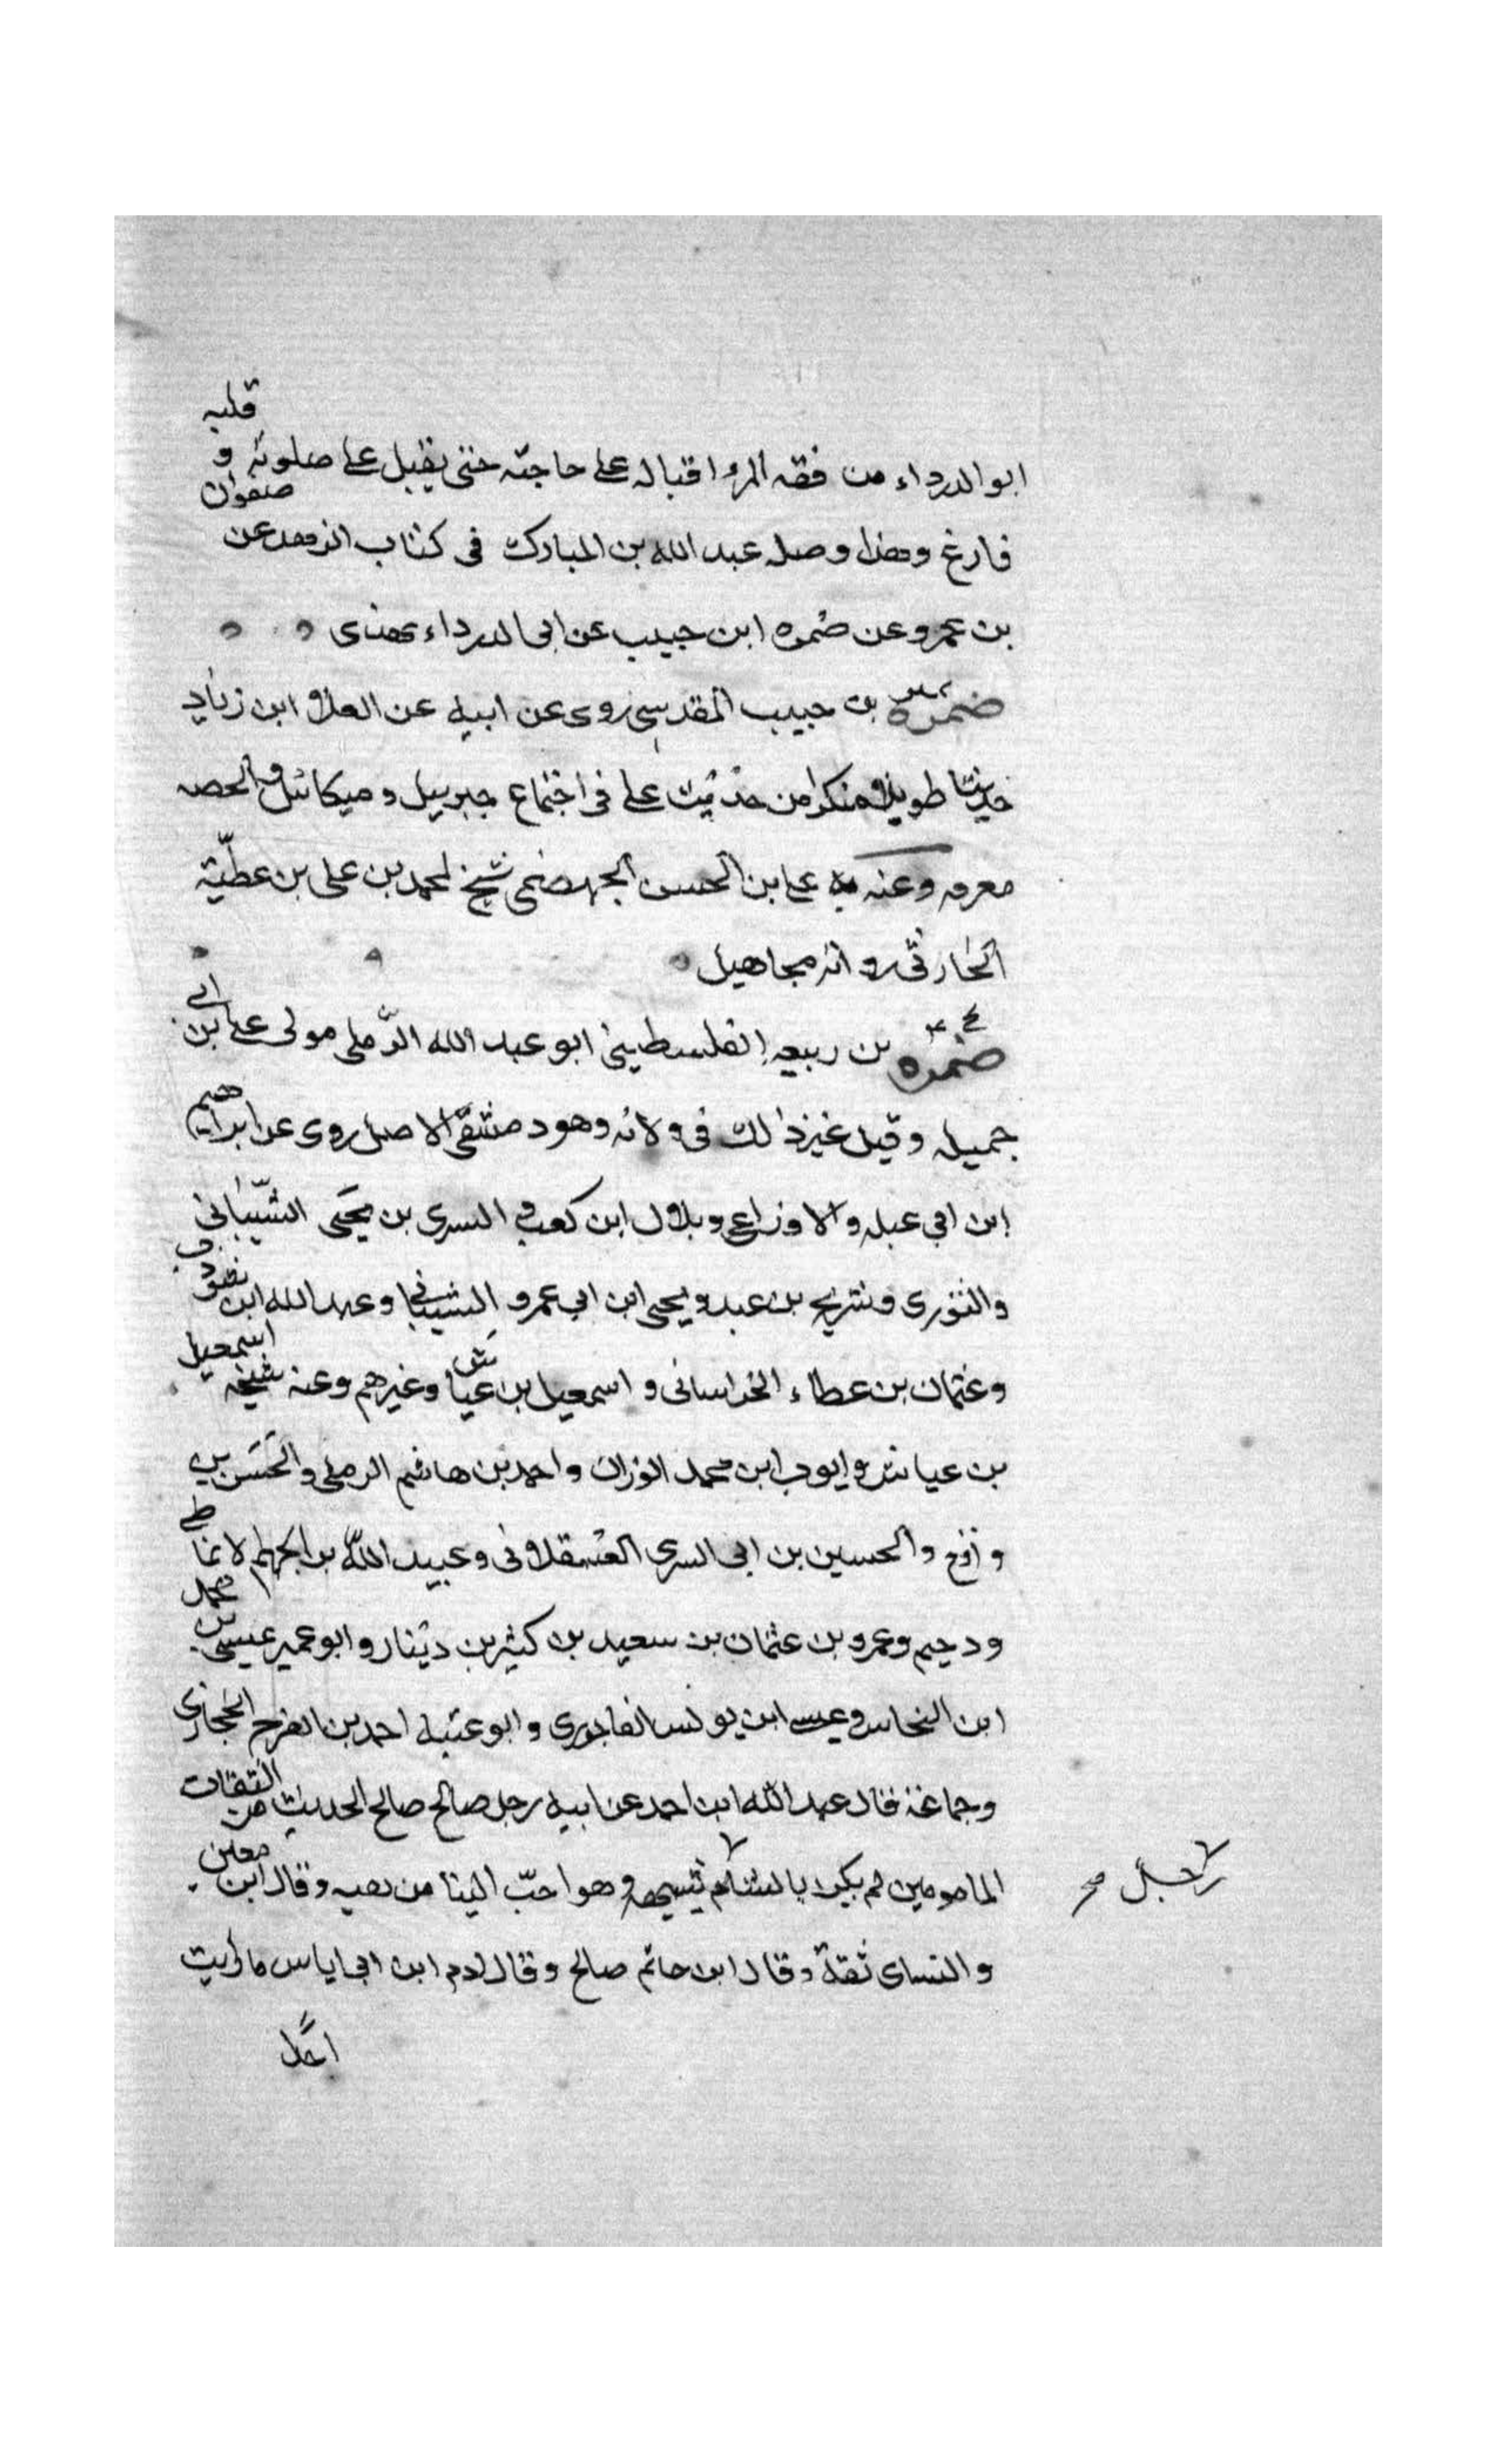 ابو الدرداء من فقه المرء اقباله على حاجته حتى يقبل على صلوته و قلبه
فارغ وهذا وصله عبد الله بن المبارك في كتاب الزهد عن صفوان
بن عمرو عن ضمره ابن حبيب عن ابى الدرداء بهذى
ضمره بن حبيب المقدسى روى عن ابيه عن العلاء ابن زياد
حديثا طويلا منكرا من حديث على فى اجتماع جبرييل و ميكائل والخصر
معرفه وعنه به على ابن الحسن الجهضمى شيخ لمحمد بن على بن عطيّة
الحارثى رواته مجاهيل
ضمره بن ربيعه الفلسطينى ابو عبد الله الرّملى مولى على ابن ابى
جميله وقيل غير ذالك فى ولائه وهو دمشقى الاصل روى عن ابراهيم
ابن ابي عبله والاوزاعى وبلال ابن كعب و السرى بن يحيى الشّيبانى
والثورى وشريح بن عبد ويحيى ابن ابي عمرو الشيبانى وعبد الله ابن شوذب
وعثمان بن عطاء الخراسانى و اسمعيل بن عياش وغيرهم وعنه شيخه اسمعيل
بن عياش وايوب ابن محمد الوزان واحمد بن هاشم الرملى والحسن بن
واقع والحسين بن ابى السرى العسقلانى وعبيد الله بن الجهم الانماطى
ودحيم وعمرو بن عثمان بن سعيد بن كثير بن دينار وابو عمير عيسى بن محمد
ابن النحاس وعيسى ابن يونس الفاخورى وابو عتبه احمد بن الفرج الحجازى
وجماعة قال عبد الله ابن احمد عن ابيه رجل صالح صالح الحديث من الثقات
المامومين لم يكن بالشام يشبهه وهو احبّ الينا من بقيه وقال ابن معين
رجل صح
والنساى ثقة وقال ابن حاتم صالح وقال ادم ابن ابى اياس ما رايت
احدا